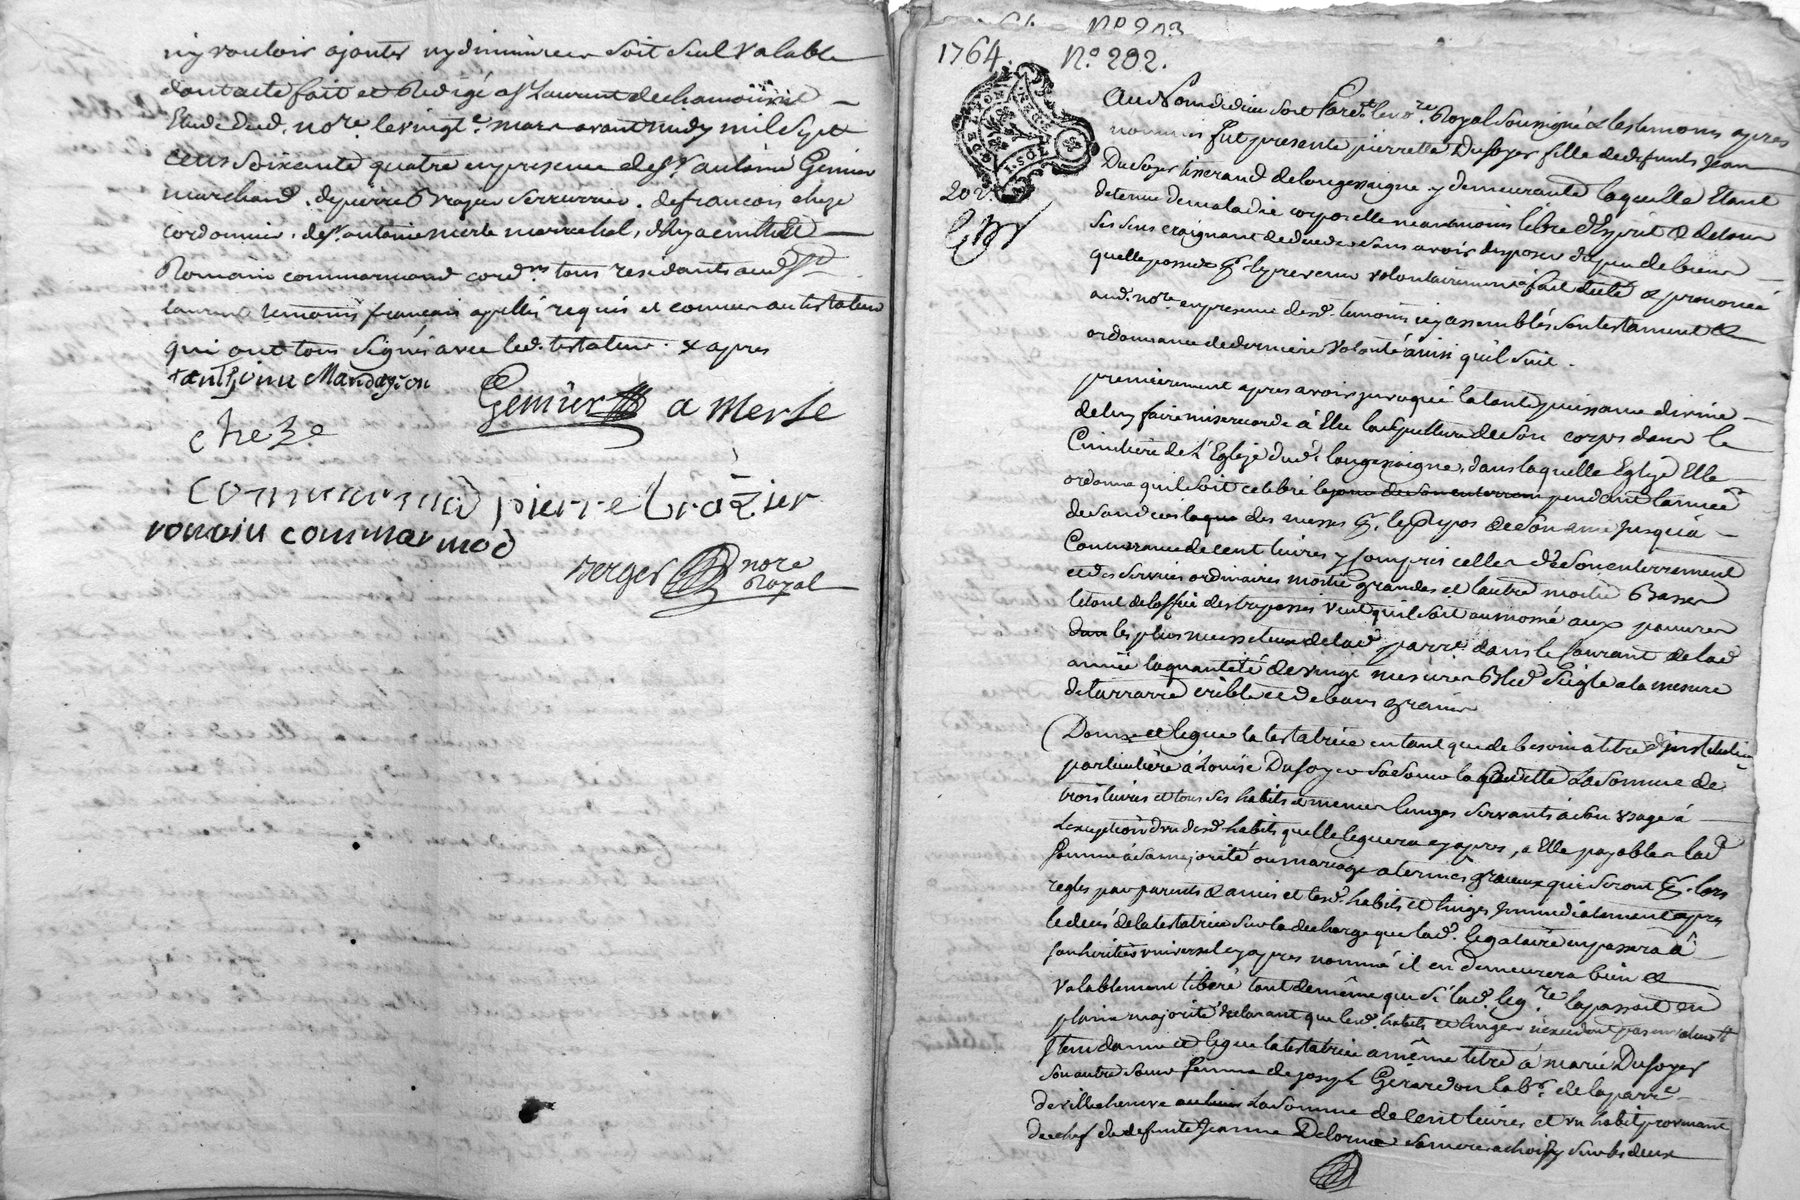 ny vouloir ajouter ny diminuer soit seul valable
dont acte fait et Redigé a St Laurent de chamousset
Etude dud. nore. le vingte. mars avant midy mil sept
cens soixente quatre en presence de Sr. antoine Genier
marchand, de pierre Brazier serrurrier, de francois cheze
cordonnier, de Sr. antoine merle marechal, & hyacinthe
Romain commarmond cordrs tous residants aud St
Laurent temoins francais appellés requis et connus au testateur
qui ont tous signés avec led. testateur. & apres
anthoine Mandagion
Genier a Merle
cheze
commarmond pierre brazier
romain commarmod
Berger nore
Royal
No 203
1764. No. 202.
DE LYON
202.
Au Nom de dieu soit Pardt. le nore. Royal soussigné & les temoins apres
nommés fut presente pierrette Dusoyer fille de defunts Jean
Dusoyer tisserand de longessaigne y demeurante laquelle Etant
detenue de maladie corporelle neanmoins libre d'Esprit & de tous
ses sens craignant de deceder sans avoir disposer du peu de biens
quelle possede & p. la prevenir volontairement a fait dicté & prononcé
aud. nore. en presence desd. temoins icy assemblés son testament &
ordonnance de derniere volonté ainsi qu'il suit.
premierement apres avoir invoqué la toute puissance divine
de luy faire misericorde a Elle la sepulture de son corps dans le
Cimitiere de l'Eglise dud. longessaigne, dans laquelle Eglise Elle
ordonne quil soit celebré le jour de son enterrem pendant l'année
de son deces des messes p. le Repos de son ame jusqu'a
Concurrance de cent livres y compris celles de son enterrement
et des services ordinaires moitié grandes et l'autre moitié Basses
letout de l'office des trepassés veut quil soit aumoné aux pauvres
les plus necessiteux de lad parre. dans le Courant de lad
année la quantité de vingt mesures Bled seigle a la mesure
de tarrarre crible et de bons grains
Donne et legue la testatrice en tant que de besoin a titre d'institution
particuliere a Louise Dusoyer sa soeur la Cadette la somme de
trois livres et tous ses habits et menus linges servants a son usage a
lexception d'un desd habits quelle leguera cy apres, a Elle payable lad
somme a sa majorité ou mariage a termes gracieux qui seront p. lors
reglés par parents & amis et lesd. habits et linges immediatement apres
le deces de la testatrice sur la decharge que lad. legataire en passera a
son heritier universel cy apres nommé il en demeurera bien et
valablement liberé tout de même que si lad. legre. la passoit en
pleine majorité declarant que lesd. habits et linges n'excedent pas en valeur
Item donne et legue la testatrice a même titre a marie Dusoyer
son autre soeur femme de joseph Gerardon labr. de la parre.
de villecheneve la somme de cent livres et un habit provenant
du chef de defunte Jeanne Delorme sa mere a choisy sur les deux